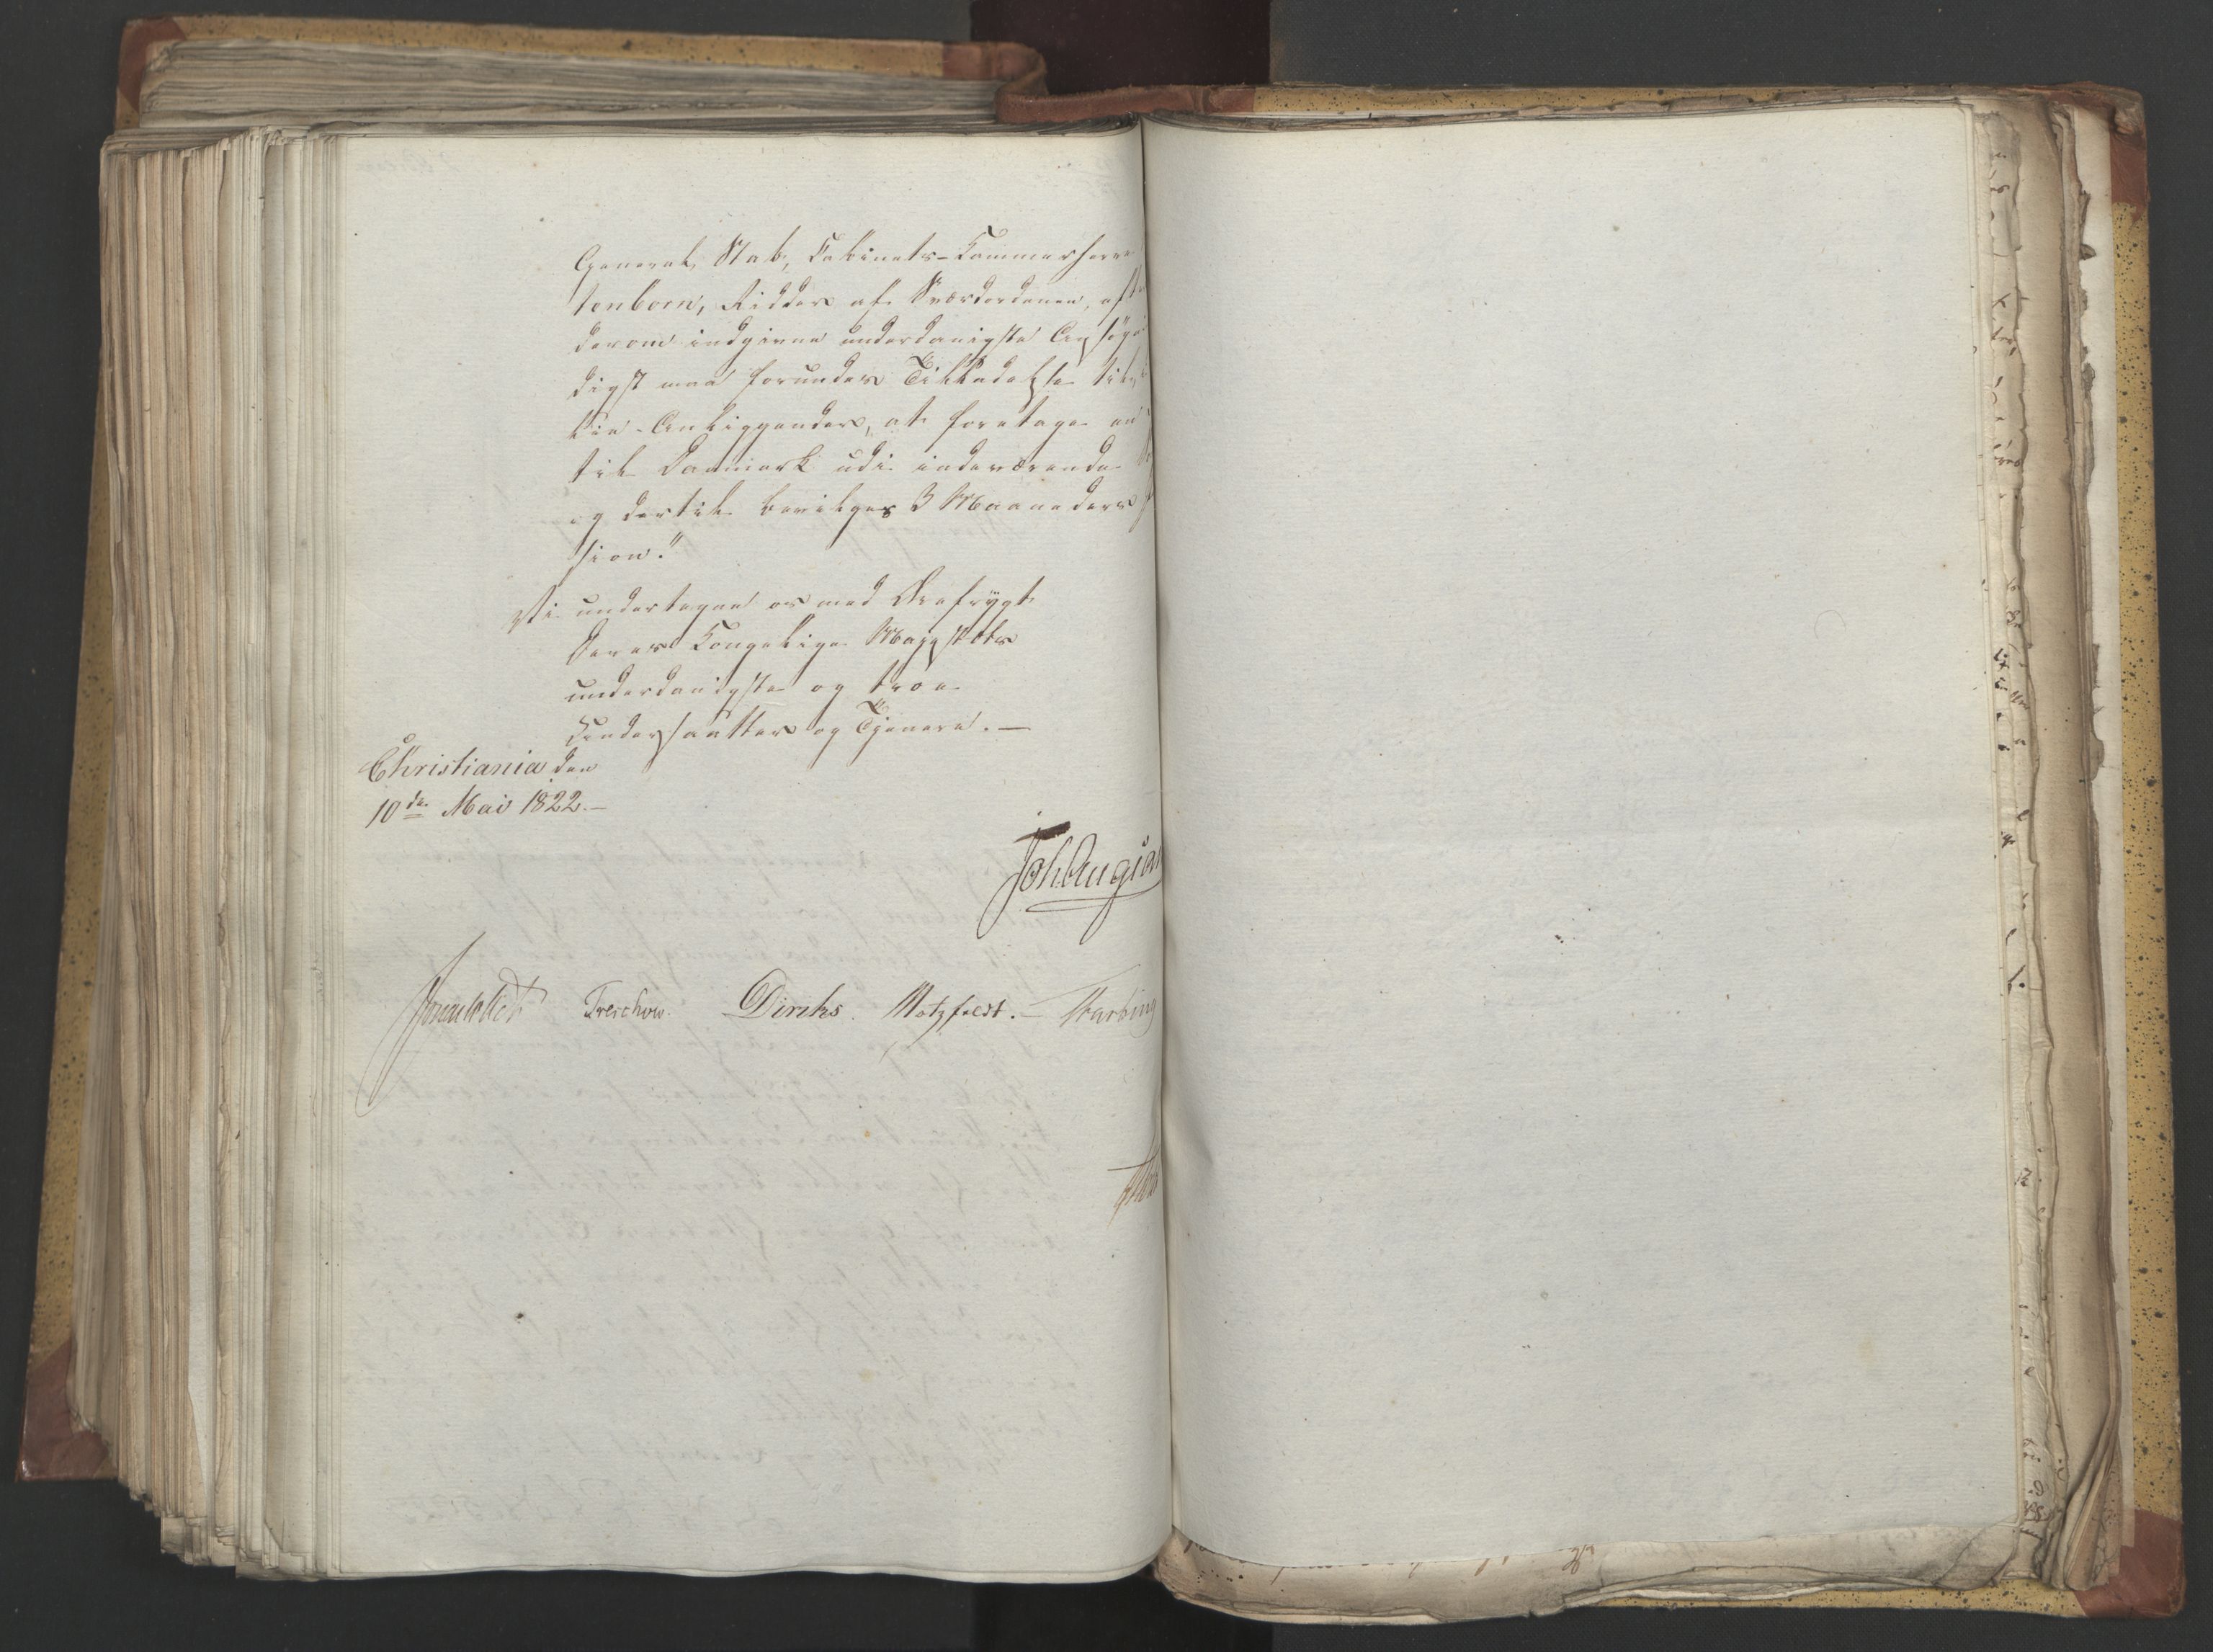 General, Stab, Cabinets-Kammerherre
tenborn, Ridder af Sværdordenen, efter
derom indgivne underdanigste Ansøg
digst maa forundes Tilladelse til,
lie-Anliggender, at foretage en
til Danmark udi indeværende
og dertil bevilges 3 Maaneders
sion."
Vi undertegne os med Ærefrygt
Deres Kongelige Majestæts
underdanigste og troe
Undersaatter og Tjenere. —
Christiania den
10de Mai 1822. —
Treschow. Diriks. Motzfeldt. —